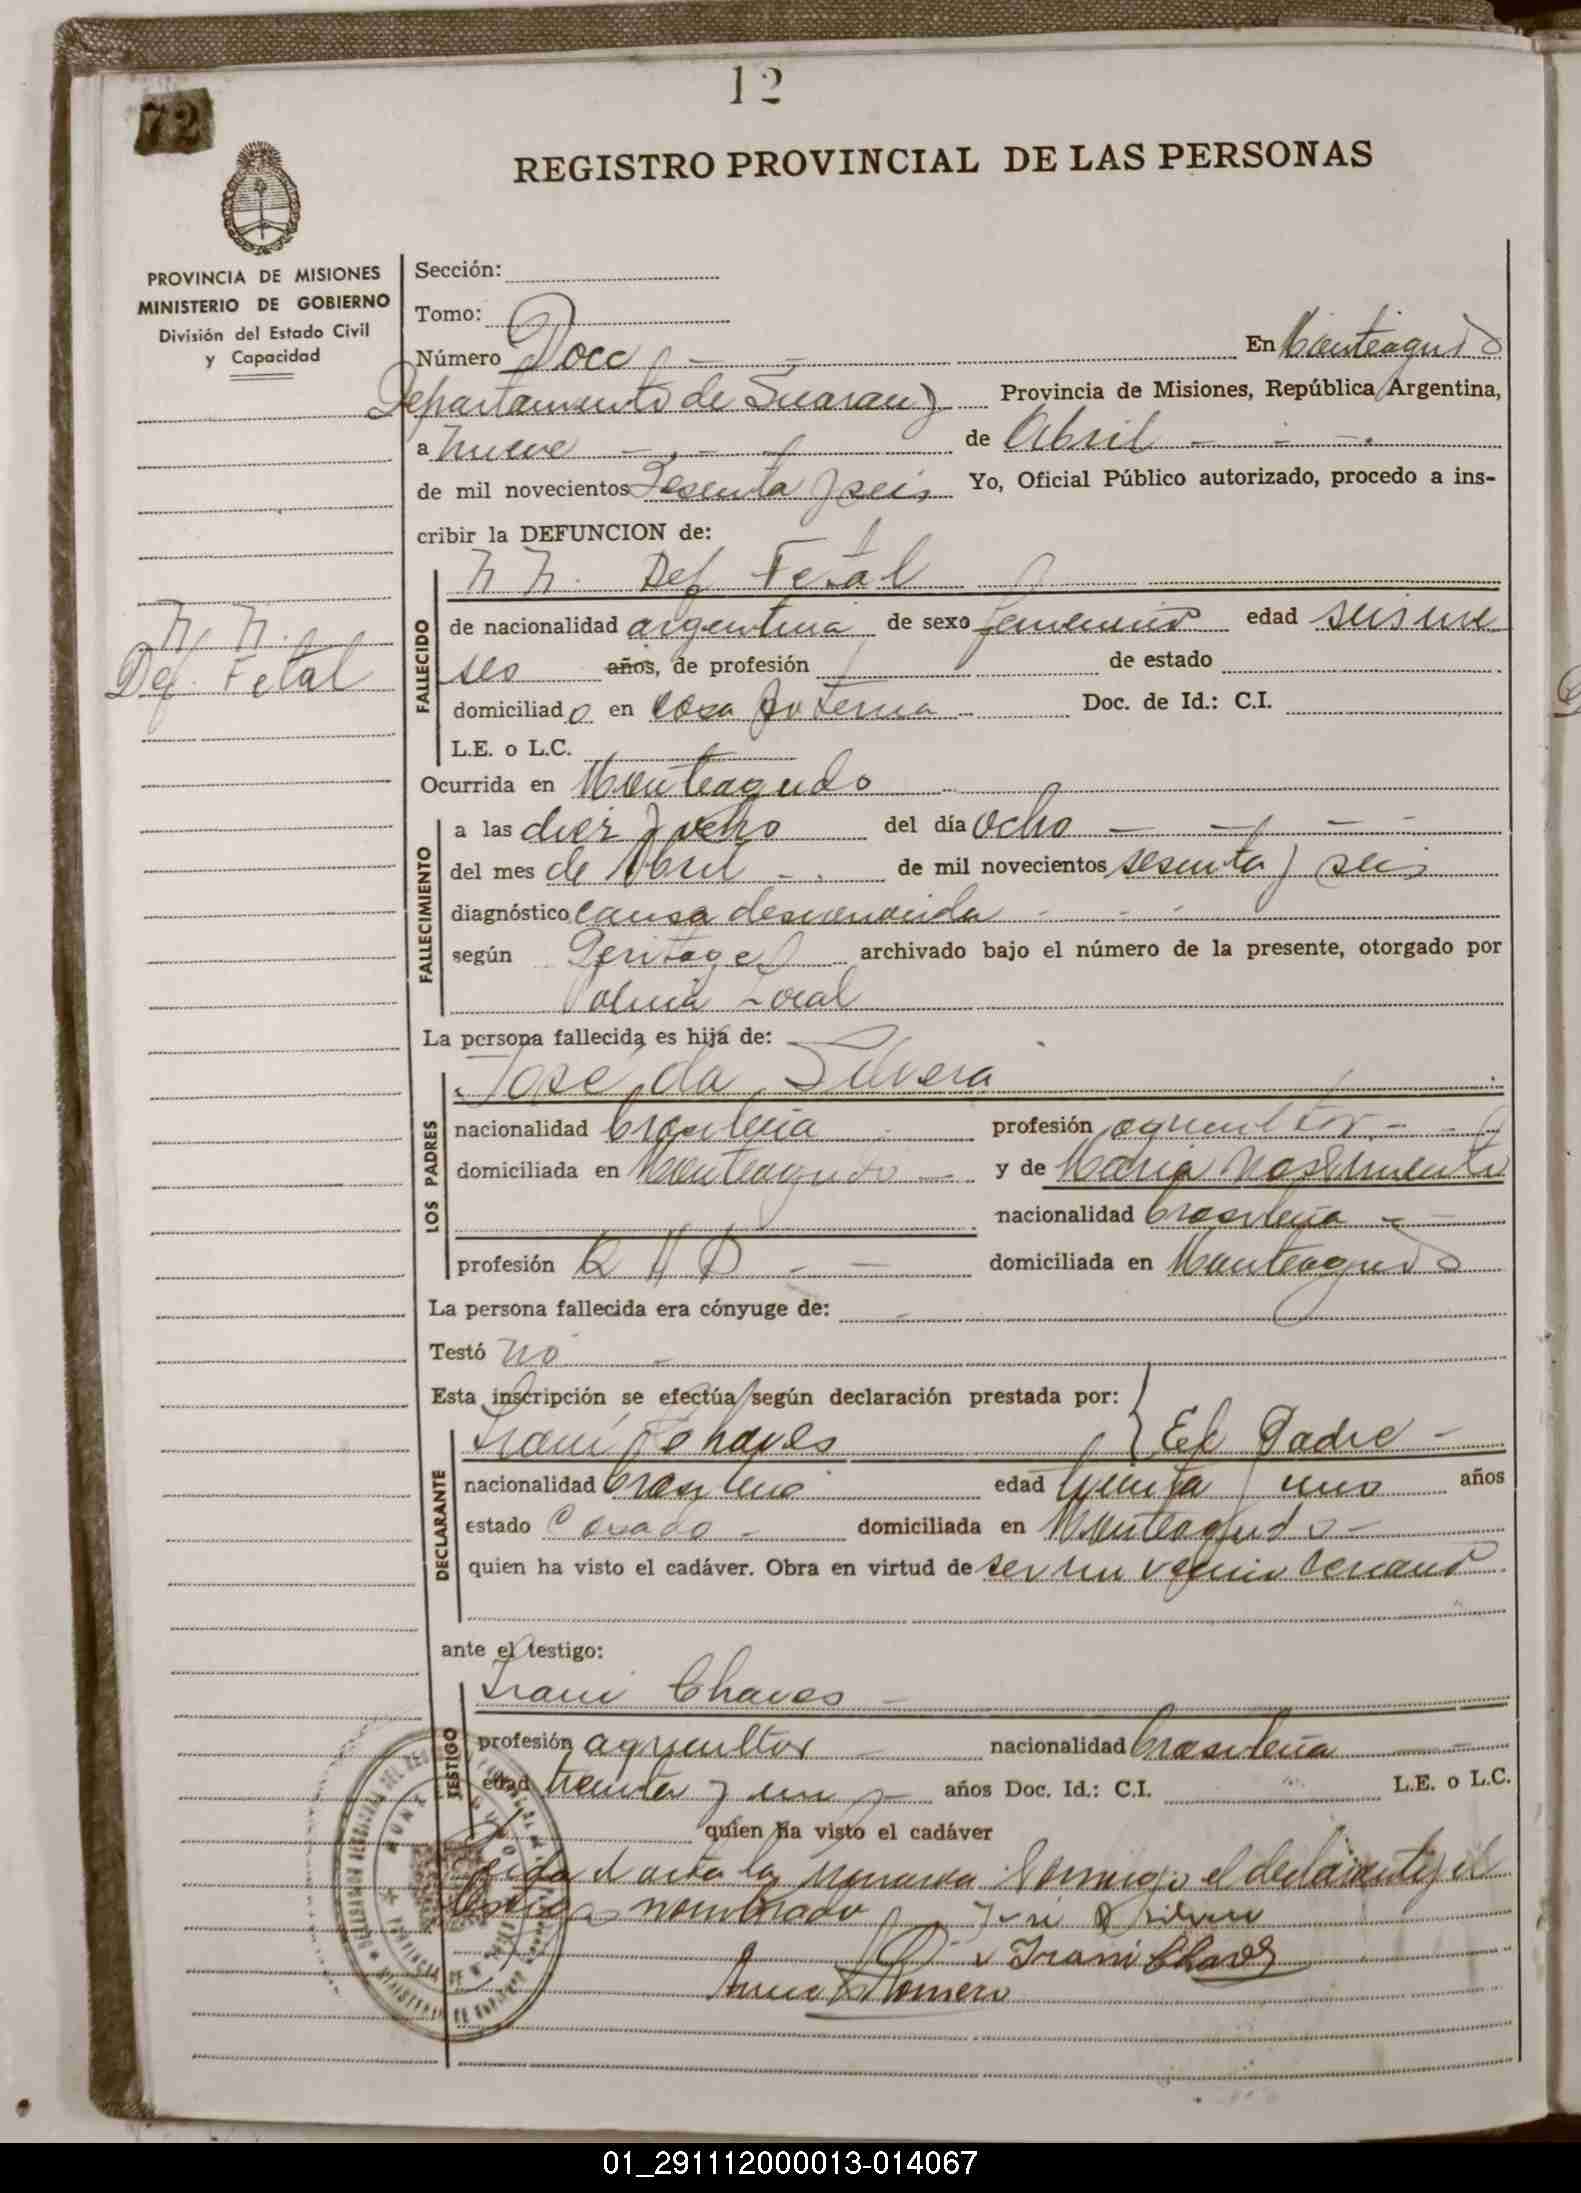 12
72
REGISTRO PROVINCIAL DE LAS PERSONAS
PROVINCIA DE MISIONES
MINISTERIO DE GOBIERNO
División del Estado Civil
y Capacidad
Sección:
Tomo:
Número Doce En Monteagudo
Departamento de Guaraní Provincia de Misiones, República Argentina,
a nueve de Abril
de mil novecientos Sesenta y seis Yo, Oficial Público autorizado, procedo a ins-
cribir la DEFUNCION de:
N N. Def Fetal
N. N.
Def. Fetal
FALLECIDO
de nacionalidad argentina de sexo femenino edad seis me
ses años, de profesión de estado
domiciliado en casa paterna Doc. de Id.: C.I.
L.E. o L.C.
Ocurrida en Monteagudo
FALLECIMIENTO
a las diez y ocho del día ocho
del mes de Abril de mil novecientos sesenta y seis
diagnóstico causa desconocida
según Peritage archivado bajo el número de la presente, otorgado por
Policia Local
La persona fallecida es hija de:
José da Silvera
LOS PADRES
nacionalidad brasileña profesión agricultor
domiciliada en Monteagudo y de Maria Nosimento
nacionalidad brasileña
profesión Q H D domiciliada en Monteagudo
La persona fallecida era cónyuge de:
Testó no
Esta inscripción se efectúa según declaración prestada por:
Irani Chaves El Padre
DECLARANTE
nacionalidad brasileña edad treinta y uno años
estado Casado domiciliada en Monteagudo
quien ha visto el cadáver. Obra en virtud de ser un vecino cercano
ante el testigo:
Irani Chaves
TESTIGO
profesión agricultor nacionalidad brasileña
edad treinta y un años Doc. Id.: C.I. L.E. o L.C.
quien ha visto el cadáver
Leida el acta la firmaron conmigo el declarante y el
testigo nombrado
Irani Chaves
Romero
01_291112000013-014067